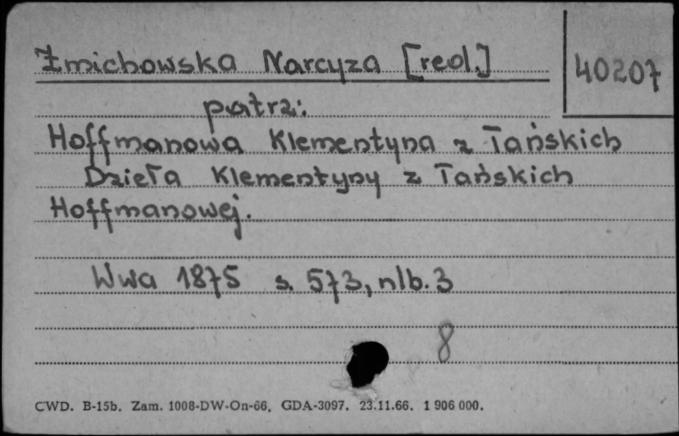 Żmichowska Narcyza [red.] 40207
patrz:
Hoffmanowa Klementyna z Tańskich
Dzieła Klementyny z Tańskich
Hoffmanowej.
Wwa 1875 s. 573, nlb. 3
8
CWD. B-15b. Zam. 1008-DW-On-66. GDA-3097. 23.11.66. 1 906 000.